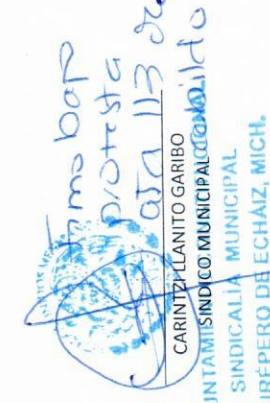 Firmo bajo
protesta
acta 113 de
cabildo
CARINTZI LLANITO GARIBO
SINDICO MUNICIPAL
UNTAM
SINDICALIA MUNICIPAL
URÉPERO DE ECHÁIZ, MICH.